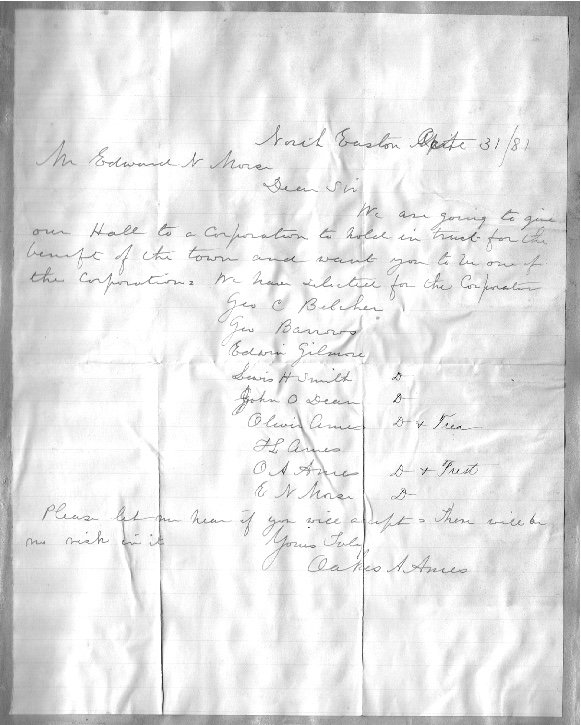 North Easton Oct 31/81
Mr Edward N Morse
Dear Sir
We are going to give
our Hall to a Corporation to hold in trust for the
benefit of the town and want you to be one of
the Corporation = We have selected for the Corporation
Geo C Belcher
Geo Barrows
Edwin Gilmore
Lewis H Smith D
John O Dean D
Oliver Ames D & Trea
F L Ames
O A Ames D & Prest
E N Morse D
Please let me hear if you will accept = There will be
no risk in it Yours Truly
Oakes A Ames